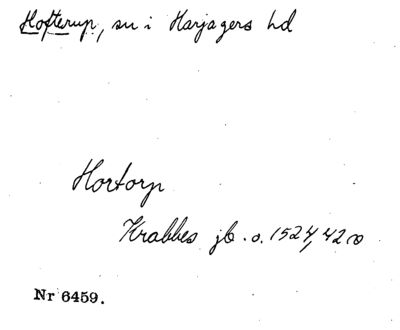 Hofterup, sn i Harjagers hd
Hortorp
Krabbes jb. o. 1524, 42
Nr 6459.